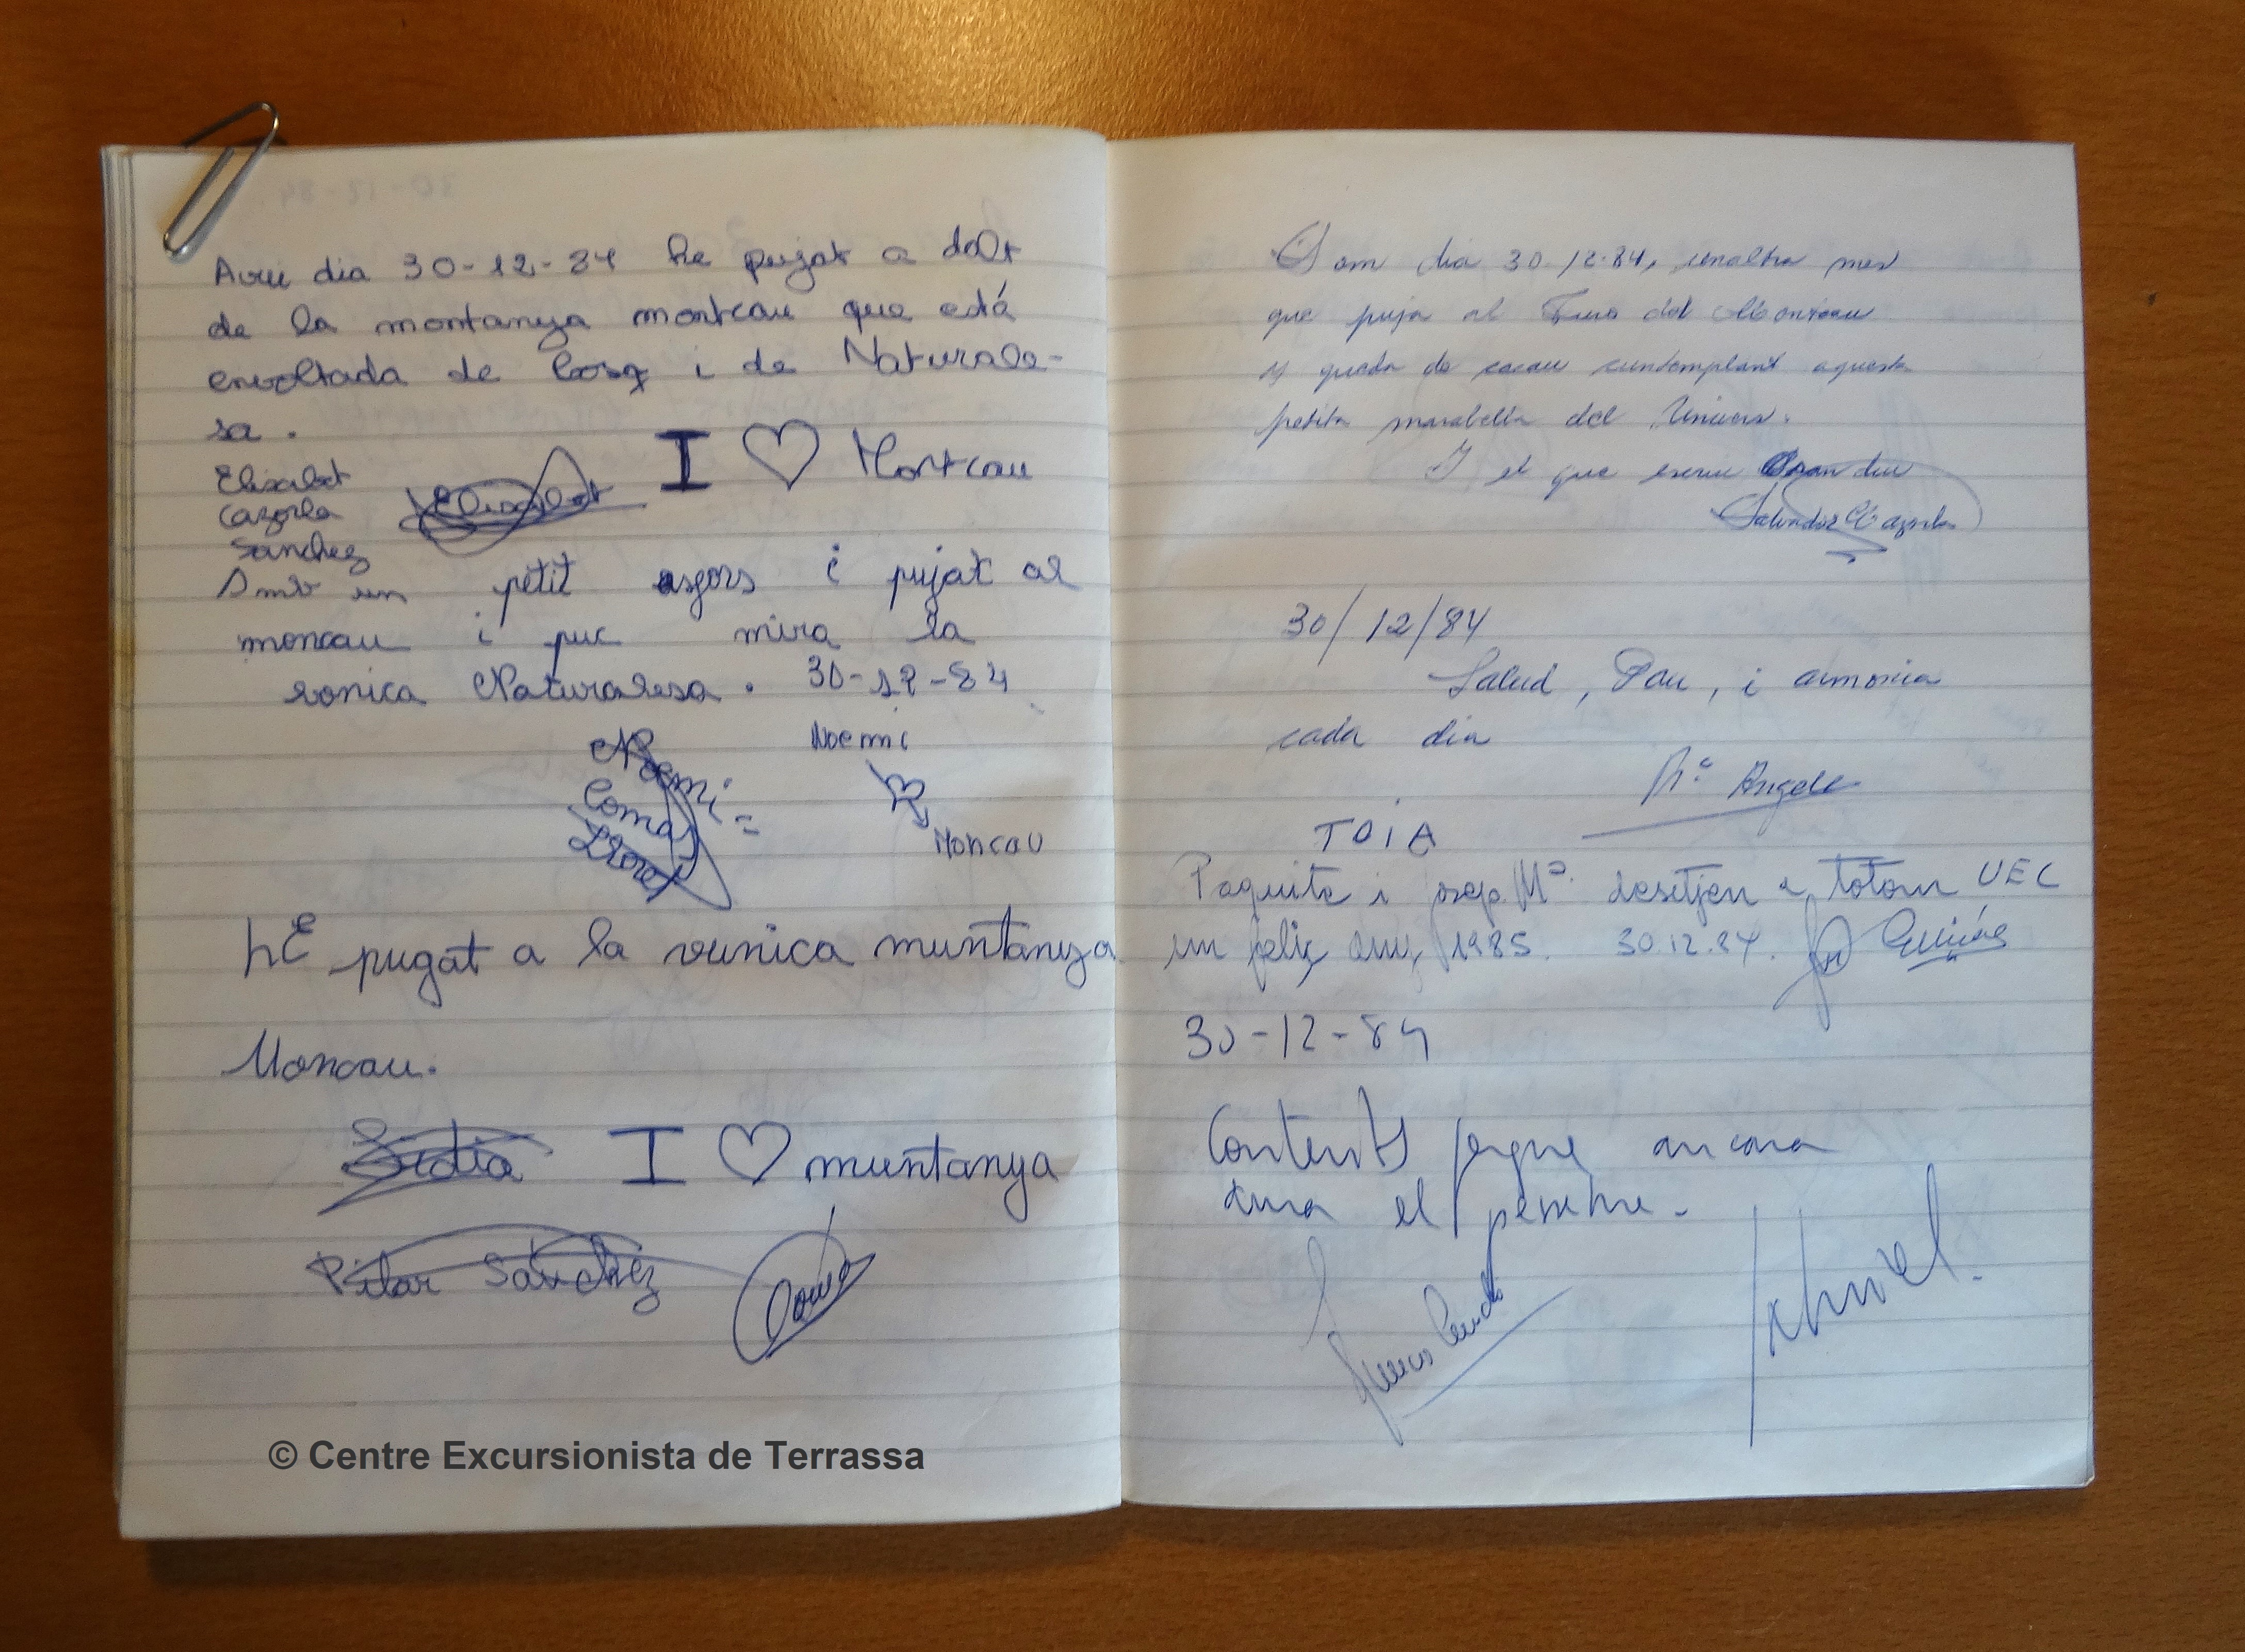 Avui dia 30-12-84 he pujat a dalt
de la montanya montcau que está
envoltada de bosq i de Naturale-
sa.
I ♡ Montcau
Elisabet
Cazorla
Sanchez
Elisabet
Amb un petit esfors i pujat al
moncau i puc mira la
vonica Naturalesa. 30-12-84
Noemi
Comas
Lloret
Noemi
♡
Moncau
hE pugat a la vunica muntanya
Moncau.
I ♡ muntanya
Pilar Sánchez
Som dia 30-12-84, unaltra mes
que puja al Turo del Montcau
y queda de cacau cuntemplant aquesta
petita marabella del Univers.
I el que escriu
Salvador Cazorla
30/12/84
Salud, Pau, i armonia
cada dia
Mª Angels
TOIA
Paquita i Josep Mª. desitjen a totom UEC
un feliç any 1985. 30.12.84.
30-12-84
Contents perque ancara
dura el pessebre.